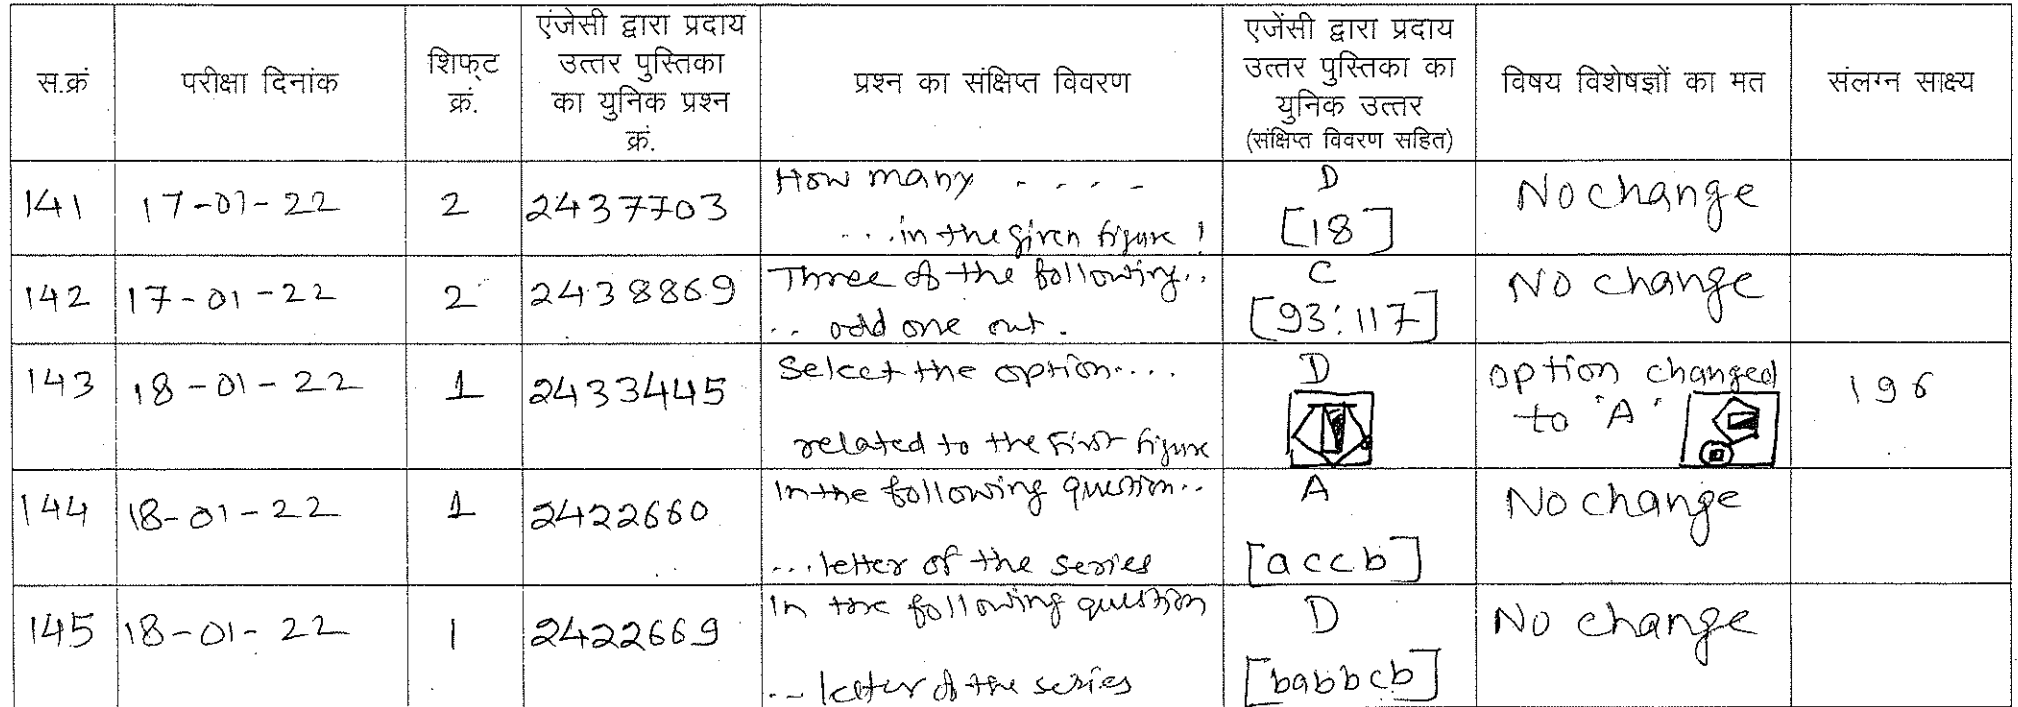 स.क्रं
परीक्षा दिनांक
शिफ्ट
क्रं.
एंजेसी द्वारा प्रदाय
उत्तर पुस्तिका
का युनिक प्रश्न
क्रं.
प्रश्न का संक्षिप्त विवरण
एजेंसी द्वारा प्रदाय
उत्तर पुस्तिका का
युनिक उत्तर
(संक्षिप्त विवरण सहित)
विषय विशेषज्ञों का मत
संलग्न साक्ष्य
141
17-01-22
2
2437703
How many - - - -
...in the given figure !
D
[18]
No change
142
17-01-22
2
2438869
Three of the following..
.. odd one out.
C
[93:117]
No change
143
18-01-22
1
2433445
Select the option....
related to the First figure
D
option changed
to 'A'
196
144
18-01-22
1
2422660
In the following question..
...letter of the series
A
[accb]
No change
145
18-01-22
1
2422669
In the following question
..letter of the series
D
[babbcb]
No change